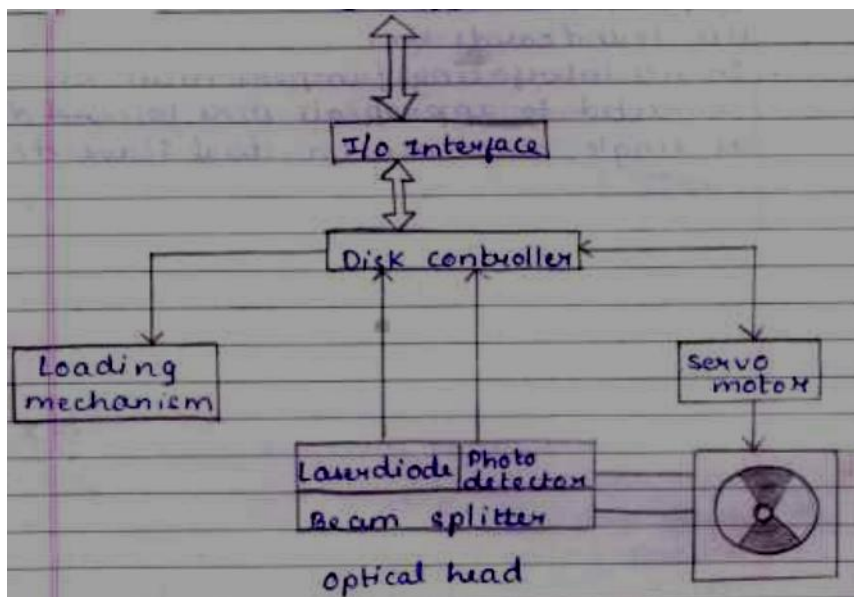 I/o Interface
Disk controller
Loading
mechanism
servo
motor
Laserdiode
Photo
detector
Beam splitter
optical head